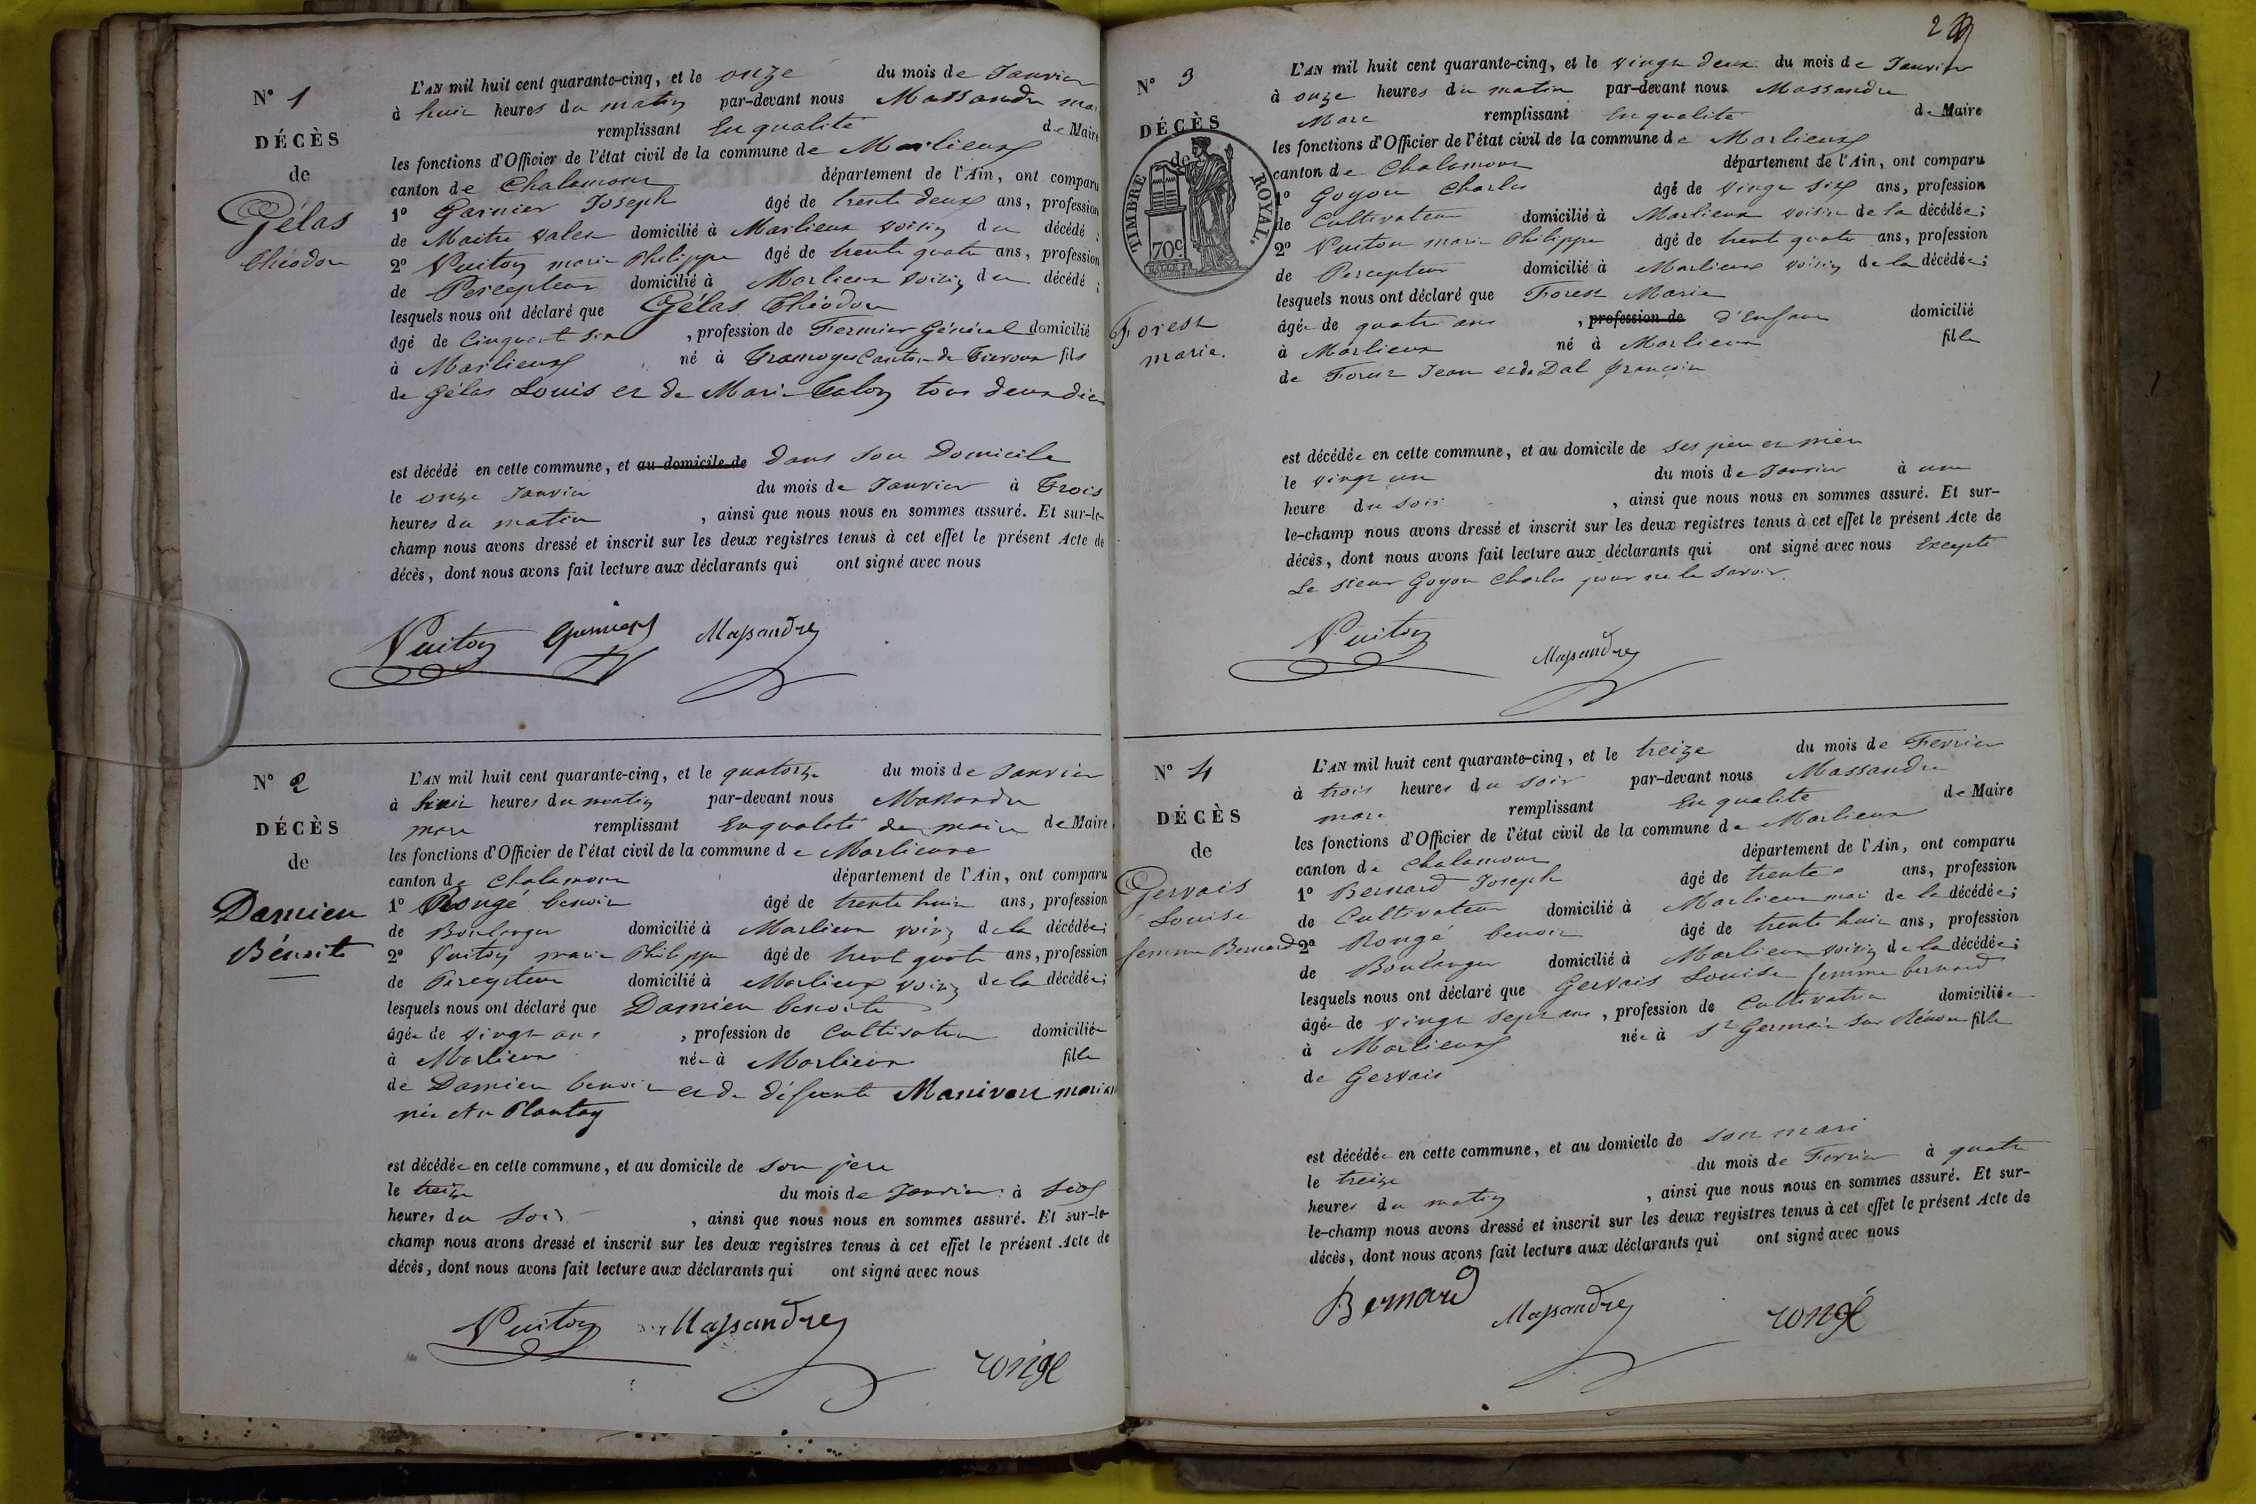 N° 1
DÉCÈS
de
Gélas
Théodore
L'AN mil huit cent quarante-cinq, et le onze du mois de Janvier
à huit heures du matin par-devant nous Massandre
remplissant En qualité de Maire
les fonctions d'Officier de l'état civil de la commune de Marlieux
canton de Chalamont département de l'Ain, ont comparu
1° Garnier Joseph âgé de trente deux ans, profession
de Maitre valet domicilié à Marlieux voisin du décédé ;
2° Vuiton marie Philippe âgé de trente quatre ans, profession
de Percepteur domicilié à Marlieux voisin du décédé ;
lesquels nous ont déclaré que Gélas Théodore
âgé de Cinquant six , profession de Fermier Général domicilié
à Marlieux né à Tramoyes Canton de Trevoux fils
de Gélas Louis et de Marie tous deux
est décédé en cette commune, et au domicile de dans son Domicile
le onze Janvier du mois de Janvier à Trois
heures du matin , ainsi que nous nous en sommes assuré. Et sur-le-
champ nous avons dressé et inscrit sur les deux registres tenus à cet effet le présent Acte de
décès, dont nous avons fait lecture aux déclarants qui ont signé avec nous
Vuiton Garnier Massandre
N° 2
DÉCÈS
de
Damien
Bénoite
L'AN mil huit cent quarante-cinq, et le quatorze du mois de Janvier
à huit heures du matin par-devant nous Massandre
marc remplissant En qualité de maire de Maire
les fonctions d'Officier de l'état civil de la commune de Marlieux
canton de Chalamont département de l'Ain, ont comparu
1° Rongé benoit âgé de trente huit ans, profession
de Boulanger domicilié à Marlieux voisin de la décédée ;
2° Vuiton marie Philippe âgé de trent quatre ans, profession
de Percepteur domicilié à Marlieux voisin de la décédée ;
lesquels nous ont déclaré que Damien benoite
âgée de vingt ans , profession de Cultivatrice domiciliée
à Marlieux née à Marlieux fille
de Damien benoit et de défunte Manivon
née Au Plantay
est décédée en cette commune, et au domicile de son père
le treize du mois de Janvier à six
heures du Soir , ainsi que nous nous en sommes assuré. Et sur-le-
champ nous avons dressé et inscrit sur les deux registres tenus à cet effet le présent Acte de
décès, dont nous avons fait lecture aux déclarants qui ont signé avec nous
Vuiton Massandre
rongé
N° 3
DÉCÈS
de
TIMBRE ROYAL
70c
Forest
marie.
L'AN mil huit cent quarante-cinq, et le vingt deux du mois de Janvier
à onze heures du matin par-devant nous Massandre
Marc remplissant En qualité de Maire
les fonctions d'Officier de l'état civil de la commune de Marlieux
canton de Chalamont département de l'Ain, ont comparu
1° Goyon Charles âgé de vingt six ans, profession
de Cultivateur domicilié à Marlieux voisin de la décédée ;
2° Vuiton marie Philippe âgé de trente quatre ans, profession
de Percepteur domicilié à Marlieux voisin de la décédée ;
lesquels nous ont déclaré que Forest Marie
âgée de quatre ans , profession de d'Enfant domicilié
à Marlieux né à Marlieux fille
de Forest Jean et de Dal françoise
est décédée en cette commune, et au domicile de ses père et mère
le vingt un du mois de Janvier à une
heure du soir , ainsi que nous nous en sommes assuré. Et sur-
le-champ nous avons dressé et inscrit sur les deux registres tenus à cet effet le présent Acte de
décès, dont nous avons fait lecture aux déclarants qui ont signé avec nous Excepté
Le sieur Goyon Charles pour ne le savoir.
Vuiton Massandre
N° 4
DÉCÈS
de
Gervais
Louise
femme Bernard
L'AN mil huit cent quarante-cinq, et le treize du mois de Fevrier
à trois heures du soir par-devant nous Massandre
marc remplissant En qualité de Maire
les fonctions d'Officier de l'état civil de la commune de Marlieux
canton de Chalamont département de l'Ain, ont comparu
1° Bernard Joseph âgé de trente ans, profession
de Cultivateur domicilié à Marlieux mari de la décédée ;
2° Rongé benoit âgé de trente huit ans, profession
de Boulanger domicilié à Marlieux voisin de la décédée ;
lesquels nous ont déclaré que Gervais Louise femme bernard
âgée de vingt sept ans , profession de Cultivatrice domiciliée
à Marlieux née à St Germain sur Rénon fille
de Gervais
est décédée en cette commune, et au domicile de son mari
le treize du mois de Fevrier à quatre
heures du matin , ainsi que nous nous en sommes assuré. Et sur-
le-champ nous avons dressé et inscrit sur les deux registres tenus à cet effet le présent Acte de
décès, dont nous avons fait lecture aux déclarants qui ont signé avec nous
Bernard Massandre rongé